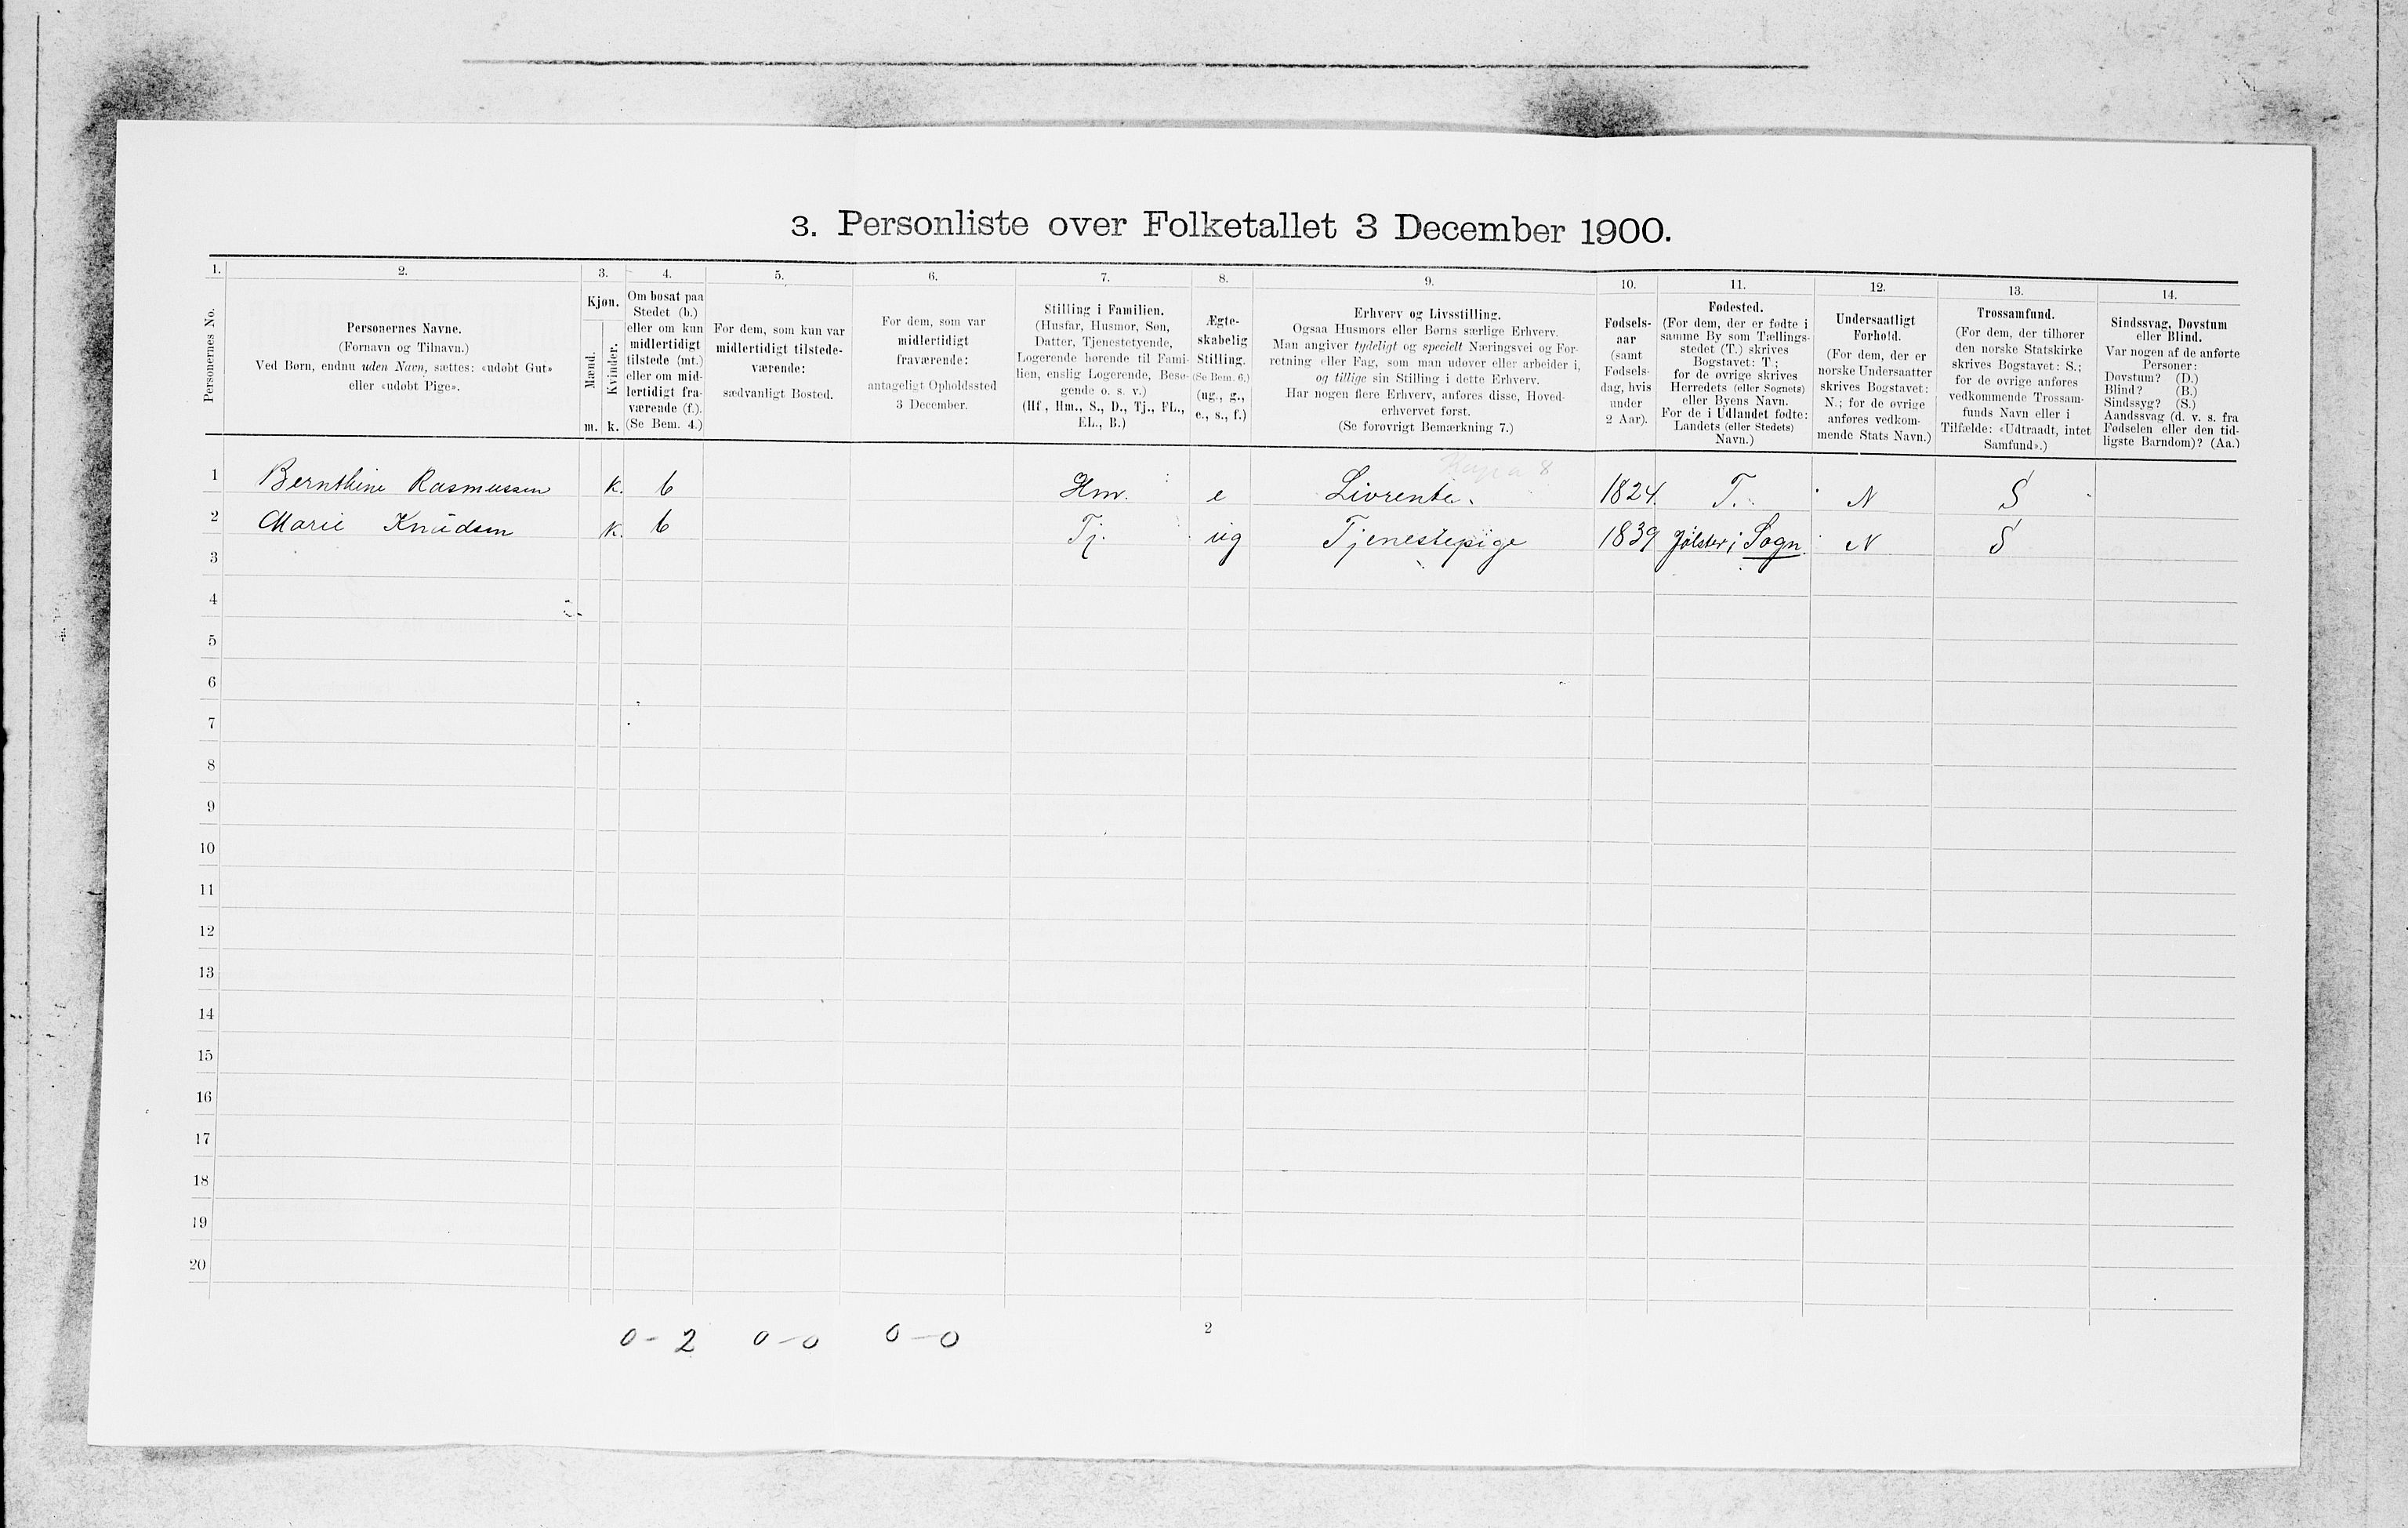 3. Personliste over Folketallet 3 December 1900.
1. 2. 3. 4. 5. 6. 7. 8. 9. 10. 11. 12. 13. 14.
Personernes No.
Personernes Navne.
(Fornavn og Tilnavn.)
Ved Børn, endnu uden Navn, sættes: «udøbt Gut»
eller «udøbt Pige».
Kjøn.
Mænd.
Kvinder.
m. k.
Om bosat paa
Stedet (b.)
eller om kun
midlertidigt
tilstede (mt.)
eller om mid-
lertidigt fra-
værende (f.).
(Se Bem. 4.)
For dem, som kun var
midlertidigt tilstede-
værende:
sædvanligt Bosted.
For dem, som var
midlertidigt
fraværende:
antageligt Opholdssted
3 December.
Stilling i Familien.
(Husfar, Husmor, Søn,
Datter, Tjenestetyende,
Logerende hørende til Fami-
lien, enslig Logerende, Besø-
gende o. s. v.)
(Hf., Hm., S., D., Tj., FL.,
EL., B.)
Ægte-
skabelig
Stilling.
(Se Bem. 6.)
(ug., g.,
e., s., f.)
Erhverv og Livsstilling.
Ogsaa Husmors eller Børns særlige Erhverv.
Man angiver tydeligt og specielt Næringsvei og For-
retning eller Fag, som man udøver eller arbeider i,
og tillige sin Stilling i dette Erhverv.
Har nogen flere Erhverv, anføres disse, Hoved-
erhvervet først.
(Se forøvrigt Bemærkning 7.)
Fødsels-
aar
(samt
Fødsels-
dag, hvis
under
2 Aar).
Fødested.
(For dem, der er fødte i
samme By som Tællings-
stedet (T.) skrives
Bogstavet: T;
for de øvrige skrives
Herredets (eller Sognets)
eller Byens Navn.
For de i Udlandet fødte:
Landets (eller Stedets)
Navn.)
Undersaatligt
Forhold.
(For dem, der er
norske Undersaatter
skrives Bogstavet:
N.; for de øvrige
anføres vedkom-
mende Stats Navn.)
Trossamfund.
(For dem, der tilhører
den norske Statskirke
skrives Bogstavet: S.;
for de øvrige anføres
vedkommende Trossam-
funds Navn eller i
Tilfælde: «Udtraadt, intet
Samfund».)
Sindssvag, Døvstum
eller Blind.
Var nogen af de anførte
Personer:
Døvstum? (D.)
Blind? (B.)
Sindssyg? (S.)
Aandssvag (d. v. s. fra
Fødselen eller den tid-
ligste Barndom)? (Aa.)
1 Bernthine Rasmussen k. b Hm. e Livrente. 1824. T. N S
2 Marie Knudsen k. b Tj. ug Tjenestepige 1839 Jølster i Sogn. N S
3
4
5
6
7
8
9
10
11
12
13
14
15
16
17
18
19
20
0-2 0-0 0-0
2